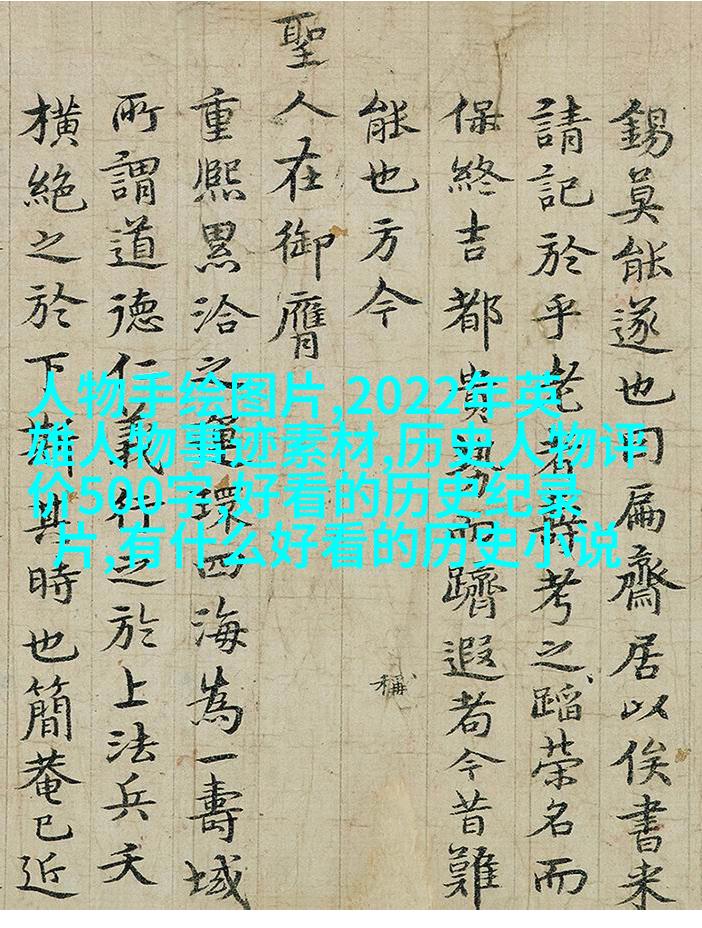 錫莫能遂也同扁齋居以俟書来
請記於乎老者考之蹈榮名而
保終吉都貴勢而躋遐耇今昔難
能也方今
稱
聖人在御膺
重熙累洽之運環四海為一壽域
所謂道德仁義行之於上法兵夭
橫絕之於下斯其時也簡菴已近
人物手绘图片,2022年英
雄人物事迹素材,历史人物评
价500字,好看的历史纪录
片,有什么好看的历史小说